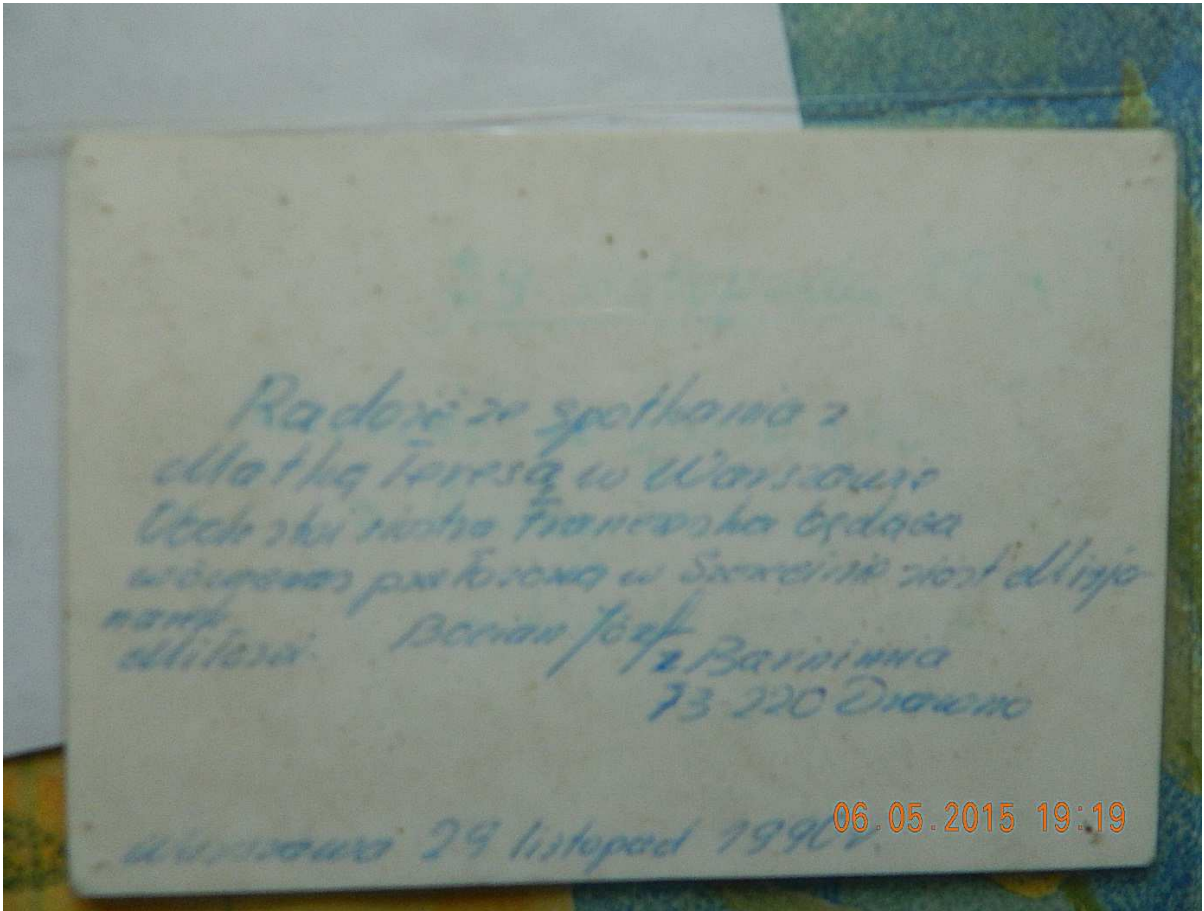 Radość ze spotkania z
Matką Teresą w Warszawie
Obok stoi siostra Franciszka będąca
wówczas przełożoną w Szczecinie sióst Misjo-
narek
Miłości. Bocian Józef
z Barnimia
73-220 Drawno
Warszawa 29 listopad 1990 r.
06.05.2015 19:19